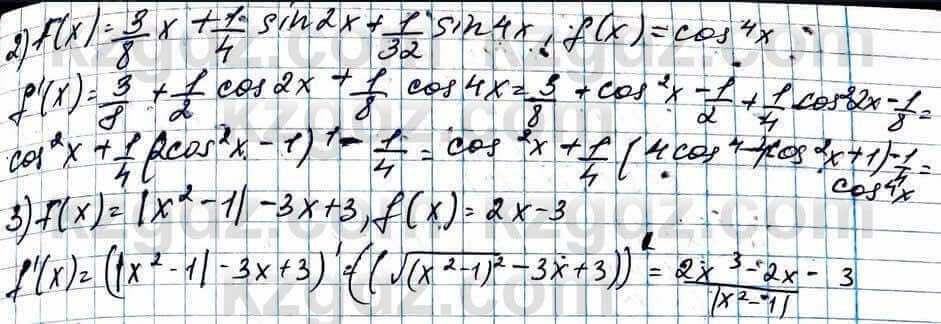 2) F(x) = 3/8 x + 1/4 sin 2x + 1/32 sin 4x, f(x) = cos⁴x
F'(x) = 3/8 + 1/2 cos 2x + 1/8 cos 4x = 3/8 + cos²x - 1/2 + 1/4 cos²2x - 1/8 =
cos²x + 1/4 (2cos²x - 1)¹ - 1/4 = cos²x + 1/4 (4cos⁴ - 4cos²x + 1) - 1/4 =
cos⁴x
3) F(x) = |x² - 1| - 3x + 3, f(x) = 2x - 3
F'(x) = (|x² - 1| - 3x + 3)' = ((√(x² - 1)² - 3x + 3))' = 2x³ - 2x / |x² - 1| - 3
kzgdz.com